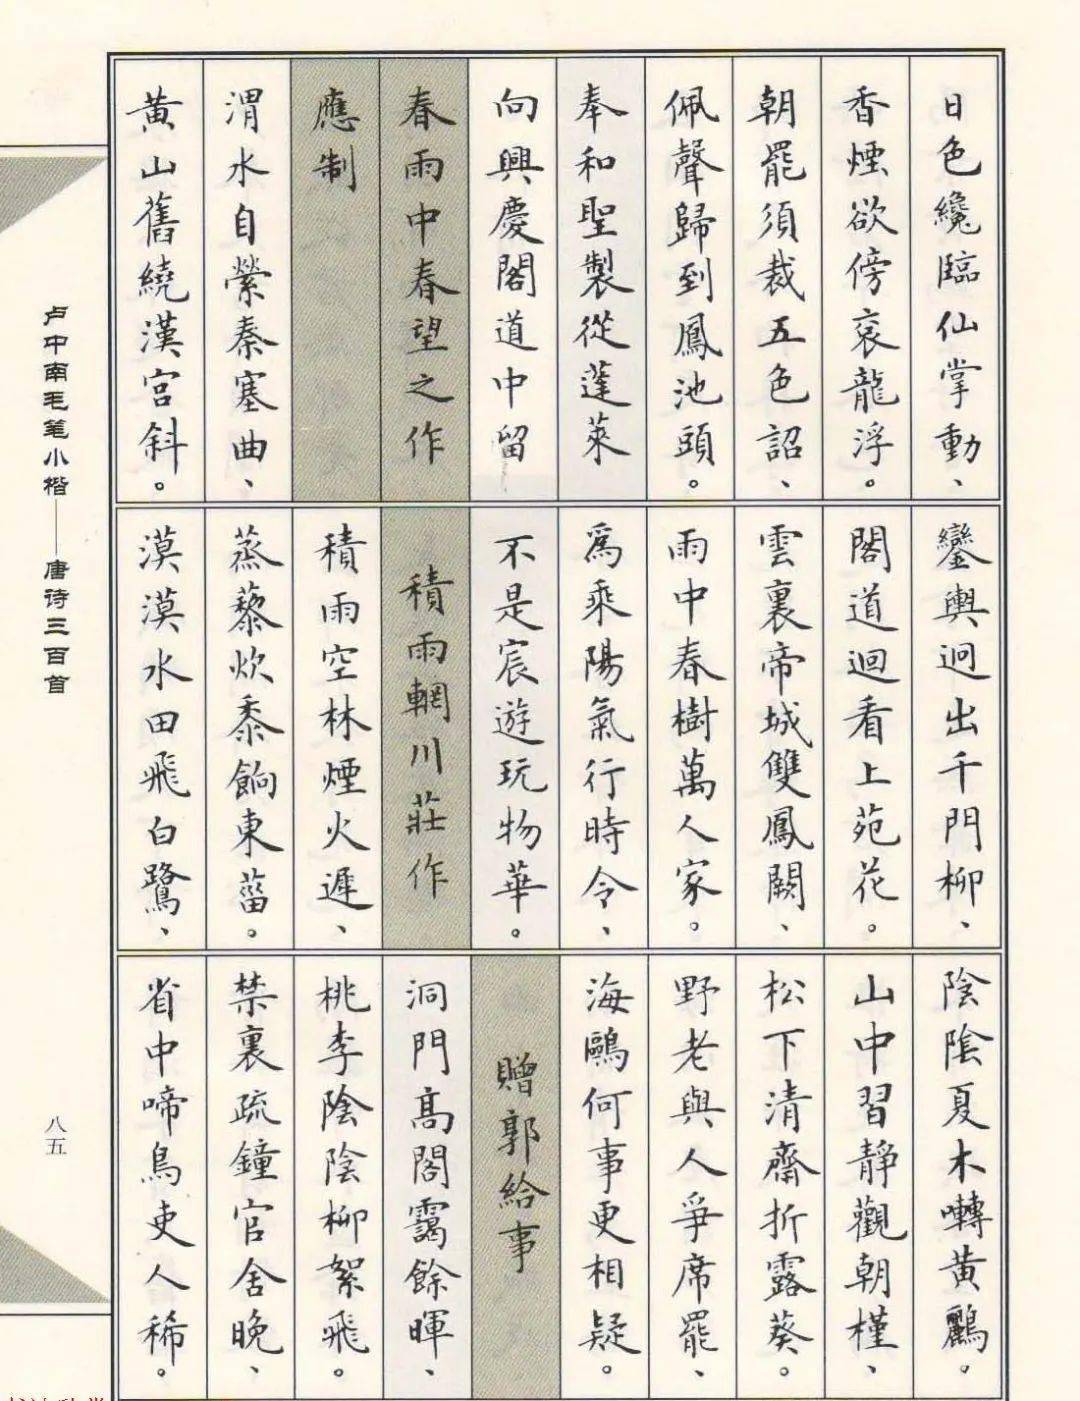 日色纔臨仙掌動、
香煙欲傍衮龍浮。
朝罷須裁五色詔、
佩聲歸到鳳池頭。
奉和聖製從蓬萊
向興慶閣道中留
春雨中春望之作
應制
渭水自縈秦塞曲、
黃山舊繞漢宮斜。
鑾輿迥出千門柳、
閣道迴看上苑花。
雲裏帝城雙鳳闕、
雨中春樹萬人家。
爲乘陽氣行時令、
不是宸遊玩物華。
積雨輞川莊作
積雨空林煙火遲、
蒸藜炊黍餉東菑。
漠漠水田飛白鷺、
陰陰夏木囀黃鸝。
山中習靜觀朝槿、
松下清齋折露葵。
野老與人爭席罷、
海鷗何事更相疑。
贈郭給事
洞門高閣靄餘暉、
桃李陰陰柳絮飛。
禁裏疏鐘官舍晚、
省中啼鳥吏人稀。
卢中南毛笔小楷——唐诗三百首
八五